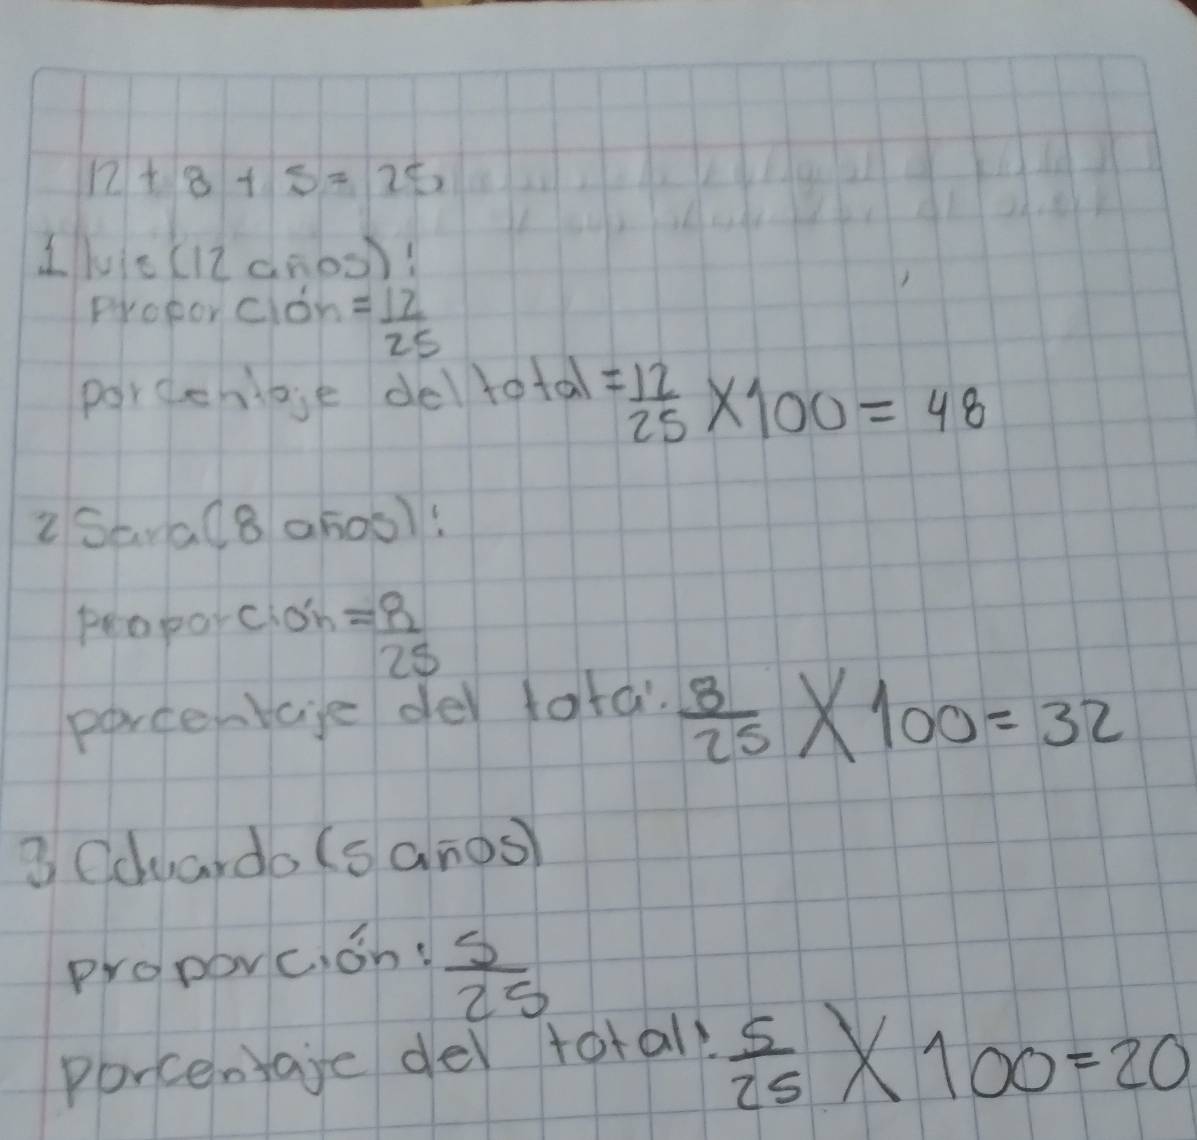 12 + 8 + 5 = 25
1 luis (12 años):
Proporción = 12/25
porcentaje del total = 12/25 X 100 = 48
2 Sara (8 años):
Proporción = 8/25
porcentaje del total: 8/25 X 100 = 32
3 Eduardo (5 años)
proporción: 5/25
porcentaje del total: 5/25 X 100 = 20